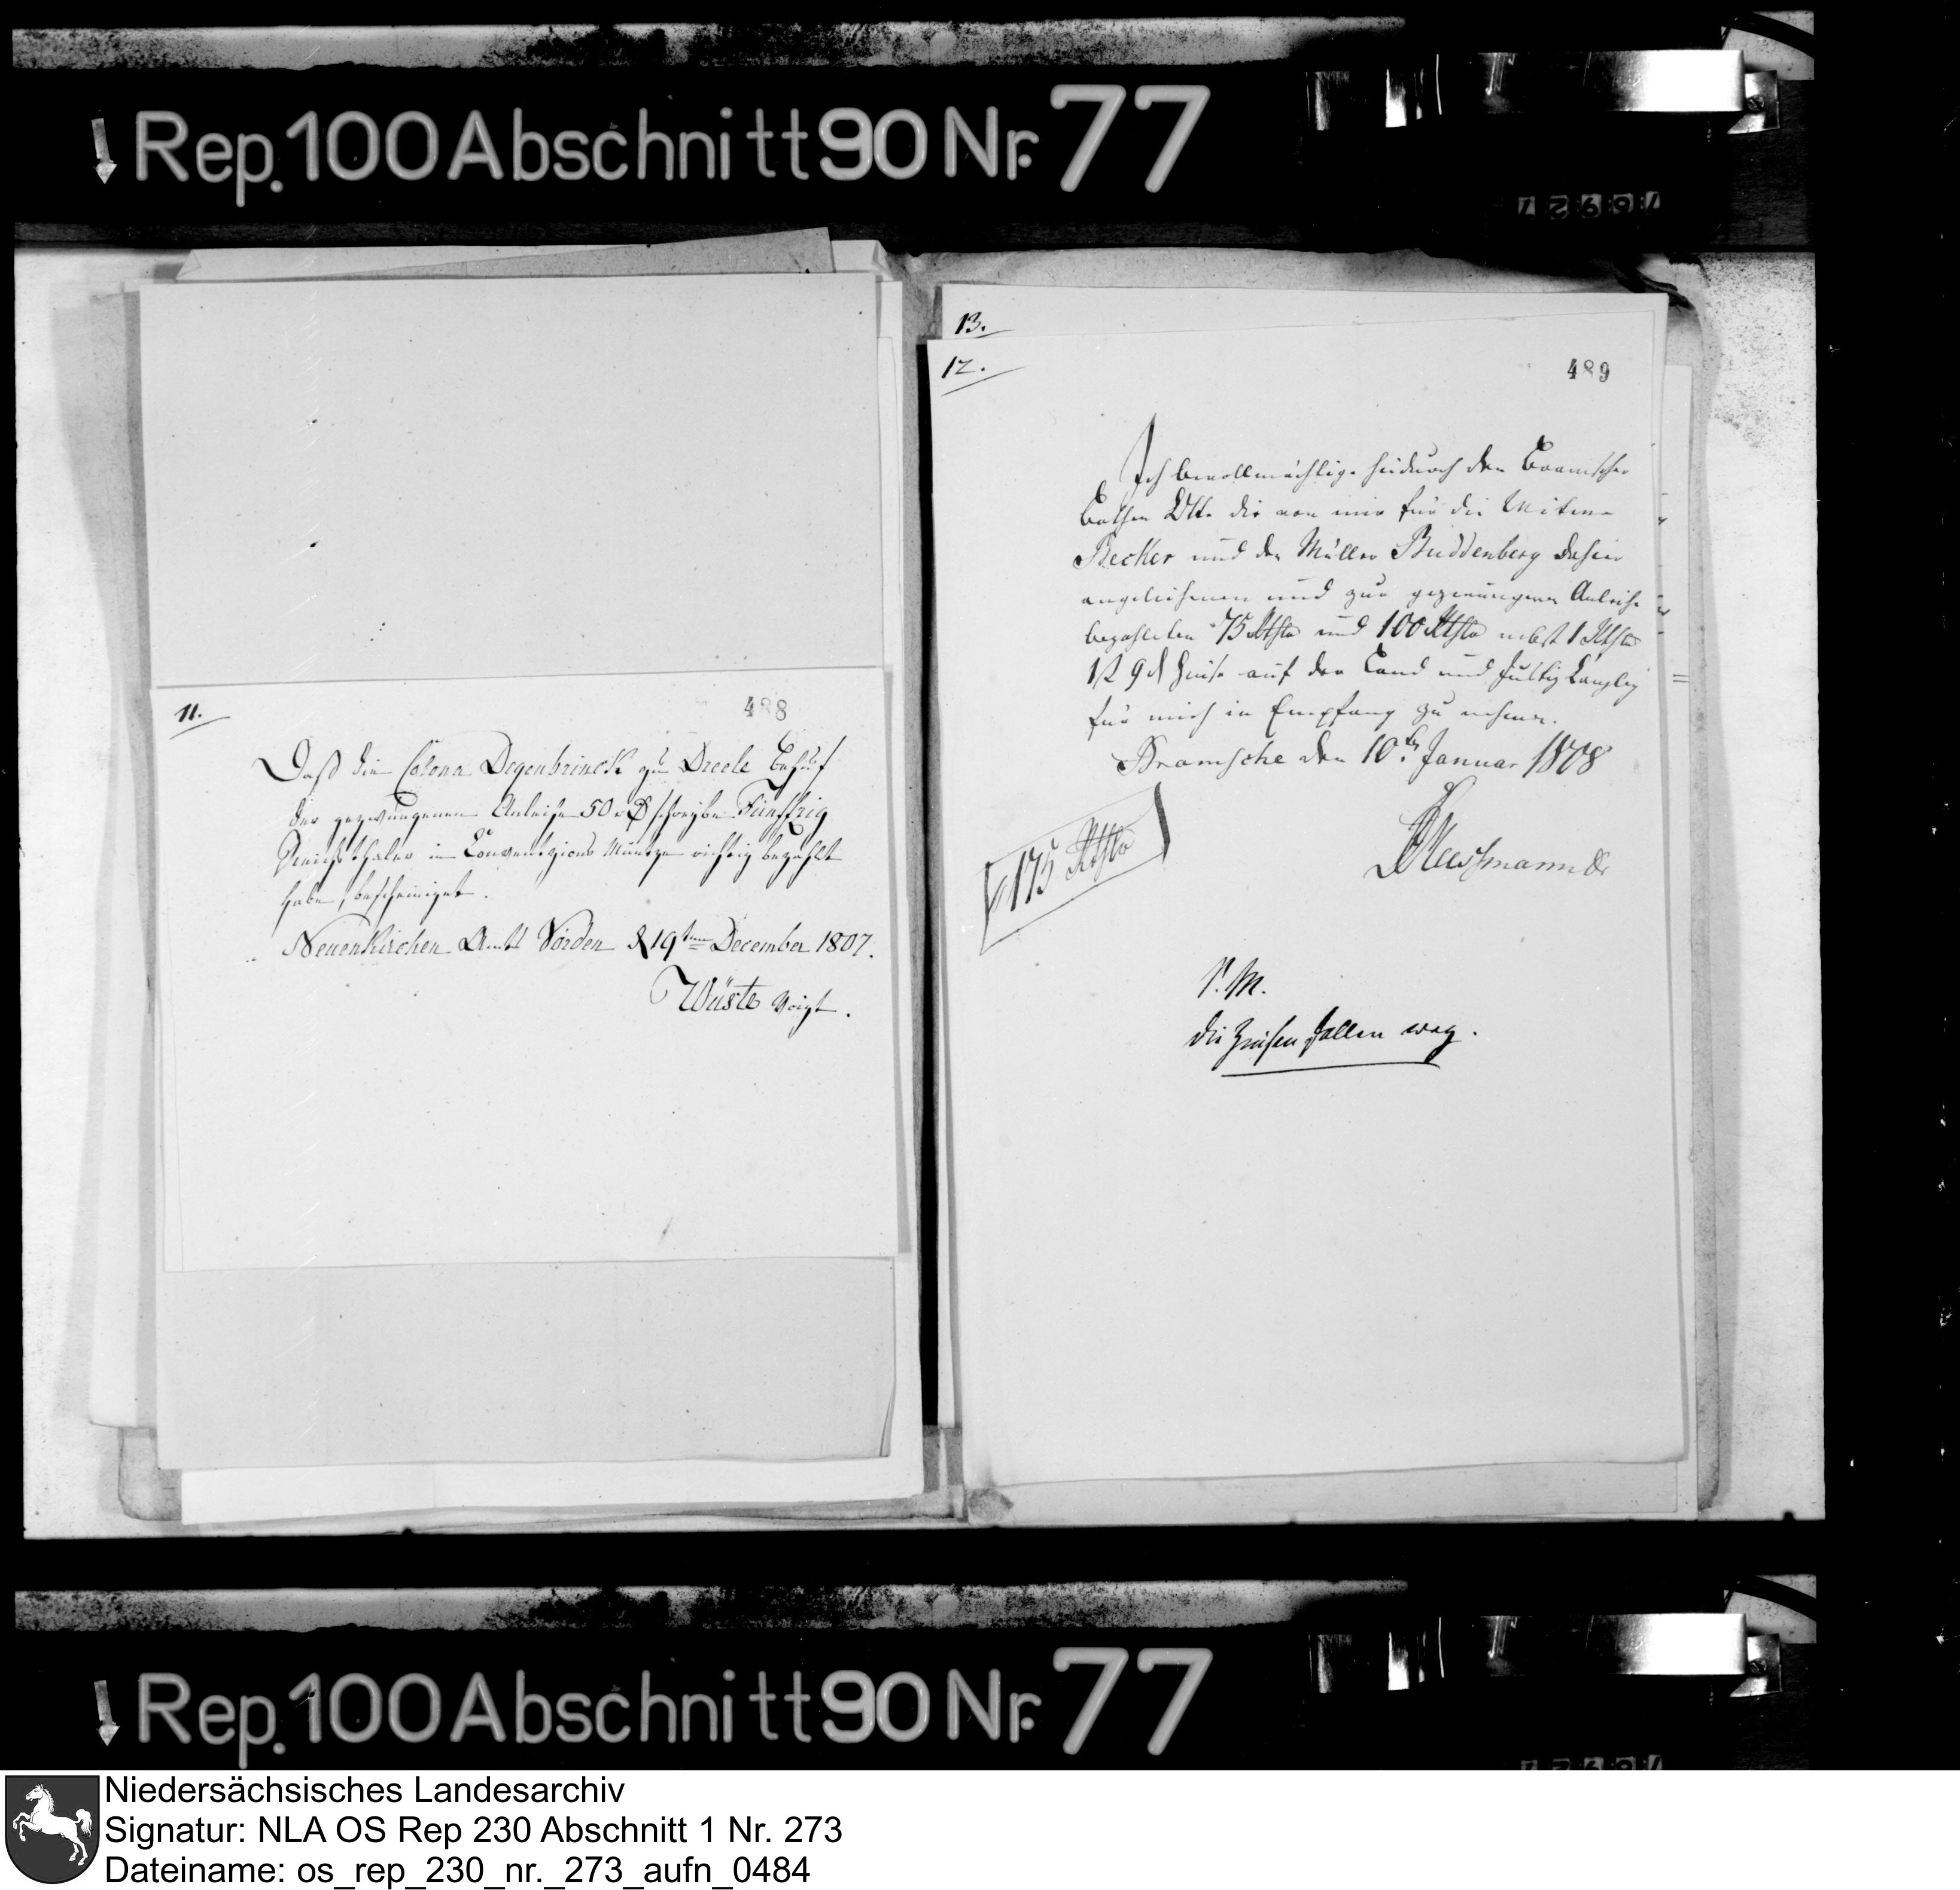 Rep. 100 Abschnitt 90 Nr. 77
11.
488
Daß die Colona Degenbrinck zu Dreele behuf
der gezwungenen Anleihe 50 schreybe Fünffzig
Reichsthaler in Convenzions Müntze richtig bezahlt
habe, bescheiniget.
Neuenkirchen Amts Vörden d 19ten December 1807.
Wüste Voigt.
13.
12.
489
Ich bevollmächtige hiedurch den Bramscher
Bothen die von mir für die Witwe
Becker und den Müller Buddenberg dahier
angeliehenen und zur gezwungenen Anleihe
bezahlten 75 Rthlr und 100 Rthlr nebst 1 Rthlr
Zinse auf der Land und Justiz Canzley
für mich in Empfang zu nehmen.
Bramsche den 10ten Januar 1808
175 Rthlr
P. M.
die Zinsen fallen weg.
Rep. 100 Abschnitt 90 Nr. 77
Niedersächsisches Landesarchiv
Signatur: NLA OS Rep 230 Abschnitt 1 Nr. 273
Dateiname: os_rep_230_nr._273_aufn_0484